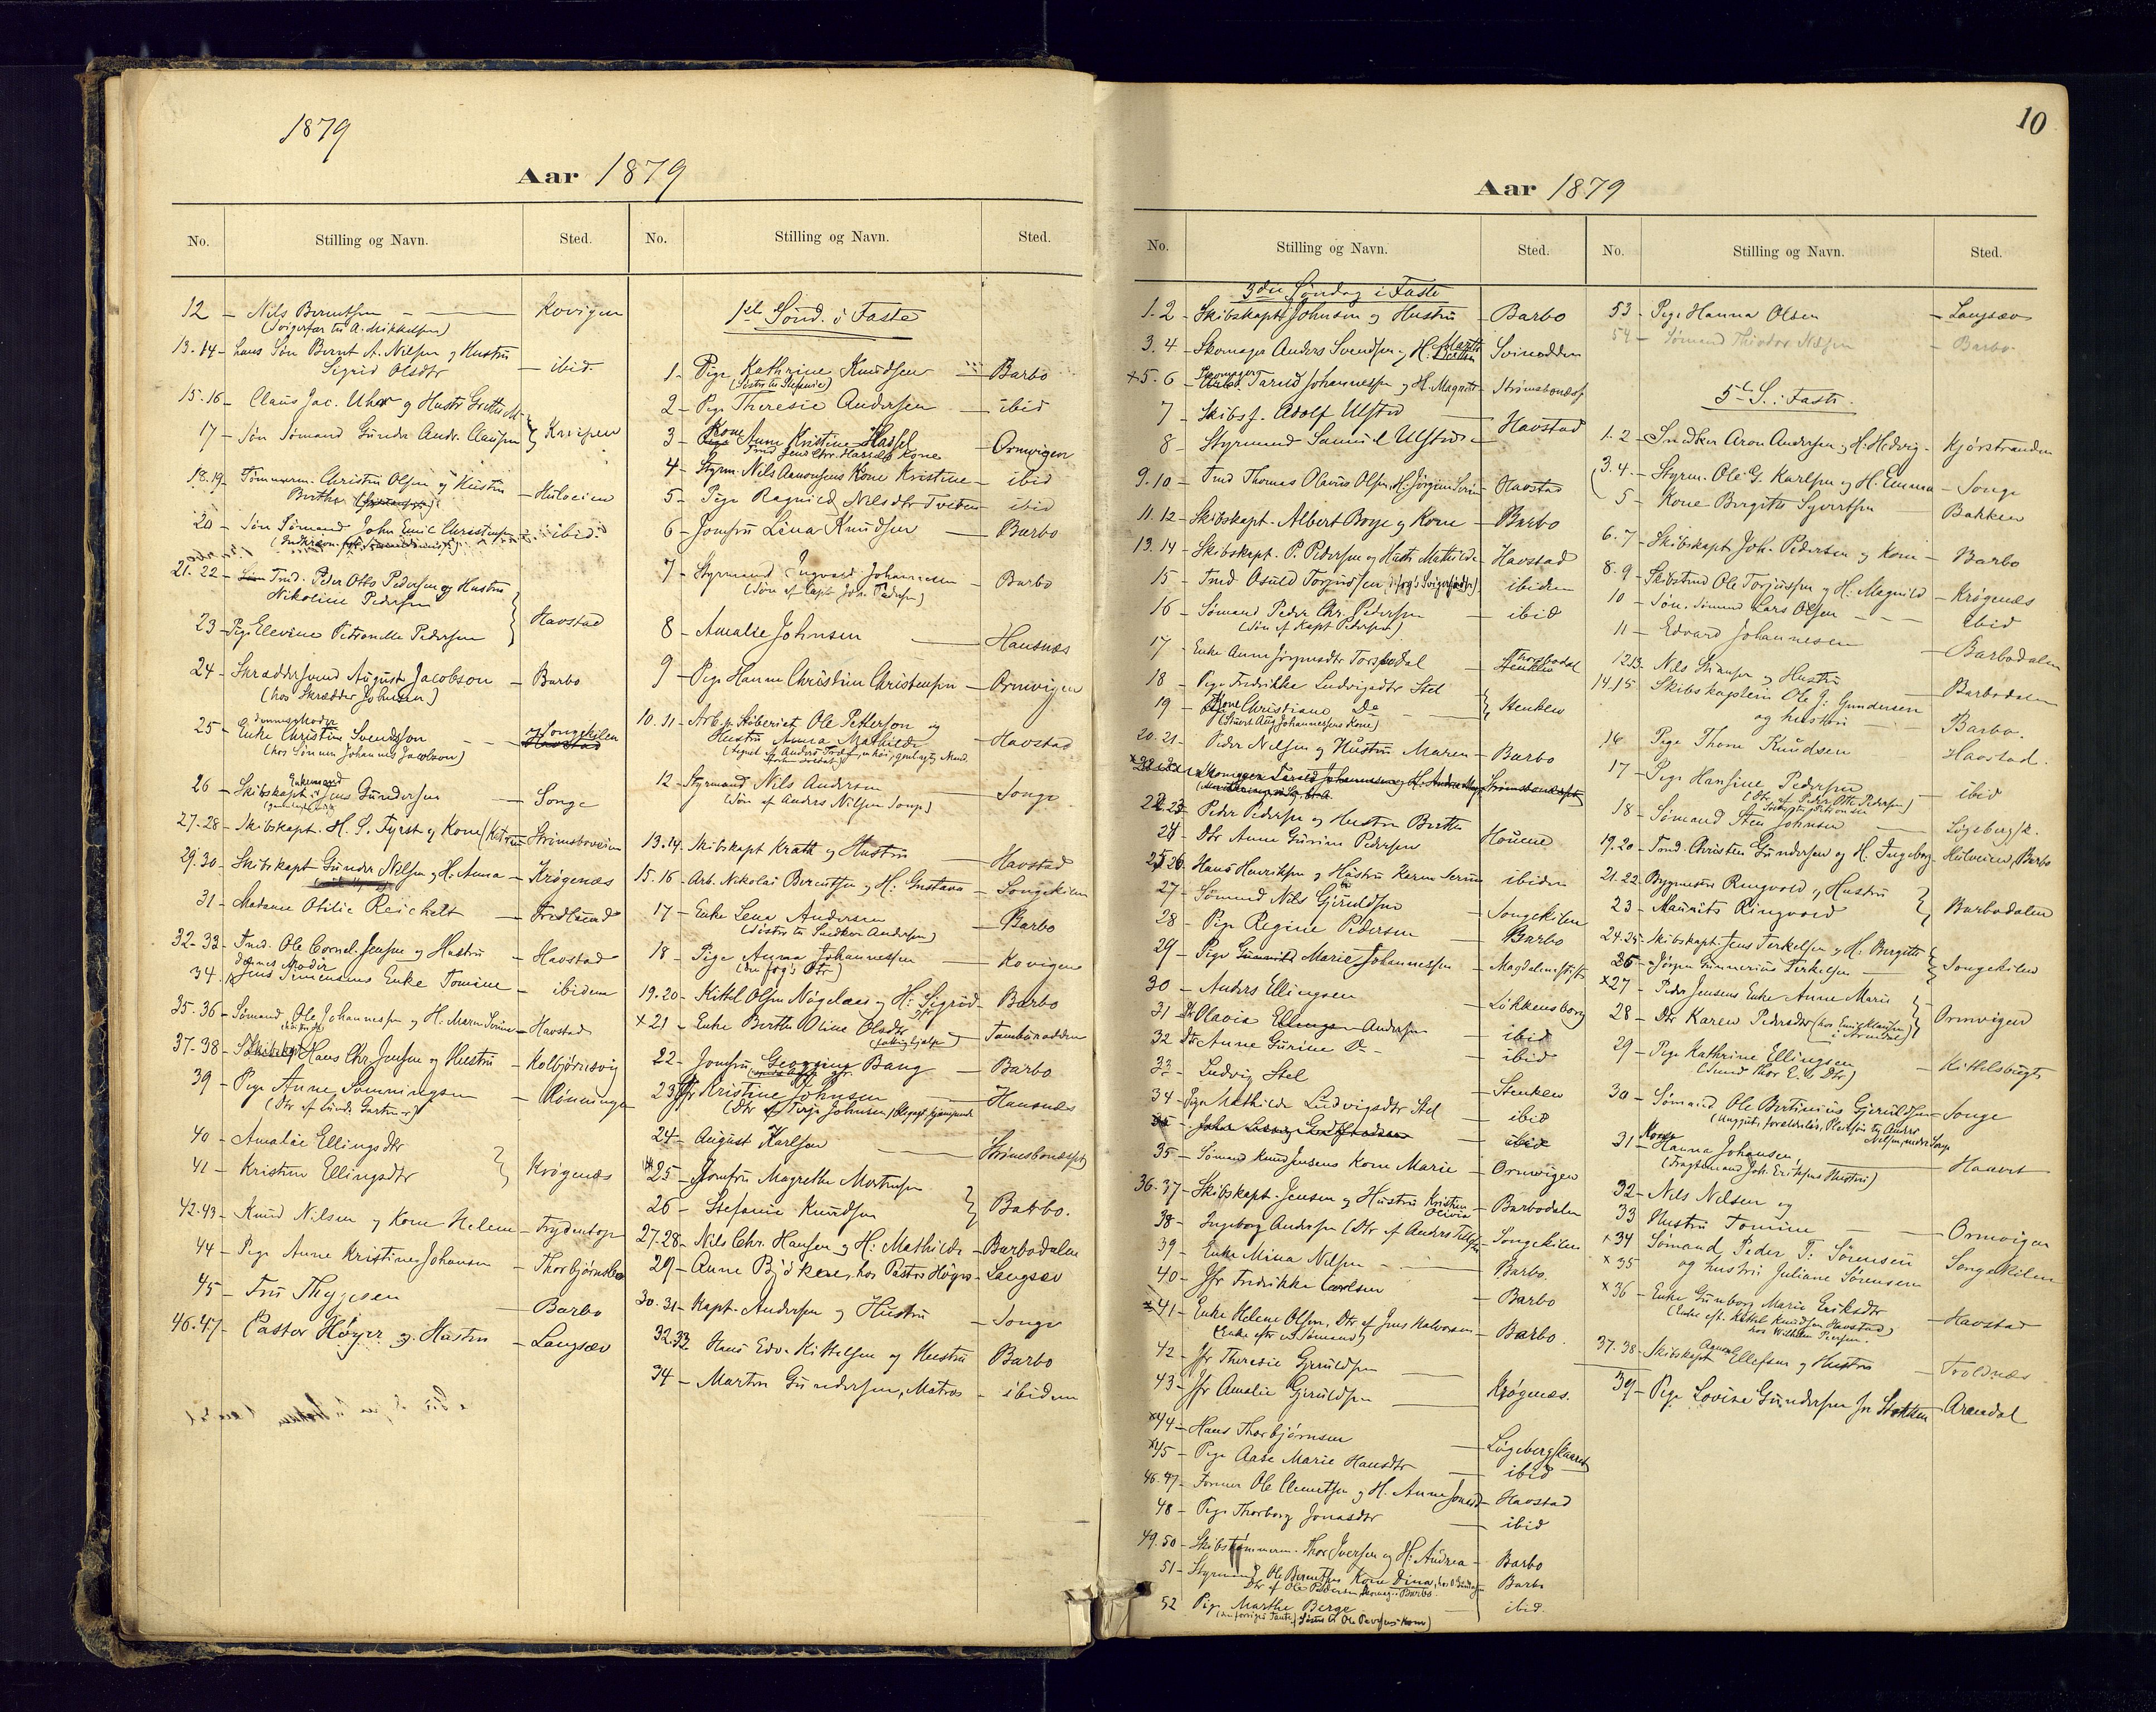 1879
Aar 1879
No. Stilling og Navn. Sted.
12 — Nils Berentsen — Kovigen
(Svigerfar til A. Mikkelsen)
13.14 — hans Søn Bernt A. Nilsen og Hustru
Sigrid Olsdtr — ibid.
15.16 — Claus Jac. Uhr og Hustr Grethe M.
17 — Søn Sømand Gundr Andr. Clausen } Knipen
18.19 — Tømmerm. Christen Olsen og Hustru
Birthe — Hulveien
20 — Søn Sømand John Emil Christensen — ibid.
21.22 — Tmd. Peder Otto Pedersen og Hustru
Nikoline Pedersen
23 — Pige Elevine Petronelle Pedersen } Havstad
24 — Skræddersvend August Jacobson — Barbo
(hos Skrædder Johnsen)
25 — Enke Christine Svendson — Songekilen
(hos Sømm Johannes Jacobson)
26 — Skibskapt. Enkemand Jens Gundersen — Songe
27-28 — Skibskapt. H. S. Fyrst og Kone — Strømsboveien
29.30 — Skibskapt Gunder Nilsen og H. Anna — Krøgenæs
31 — Madame Otilie Reichelt — Fredlund
32-33 — Tmd. Ole Cornel. Jensen og Hustru — Havstad
34 — dennes Moder
Jens Timemanns Enke Tomine — ibidem
35.36 — Sømand Ole Johannesen og H. Maren Serine — Havstad
37-38 — Hans Chr. Jensen og Hustru — Kolbjørnsvig
39 — Pige Anne Sønningsen — Rønningen
(Dtr af blinde Gartner)
40 — Amalie Ellingsdtr
41 — Kristine Ellingsdtr } Krøgenæs
42.43 — Knud Nilsen og Kone Helene — Frydentop
44 — Pige Anne Kristine Johansen — Thorbjørnsbro
45 — Fru Thygesen — Barbo
46.47 — Pastor Høyer og Hustru — Langsæv
No. Stilling og Navn. Sted.
1ste Sønd. i Faste
1 — Pige Kathrine Knudsen — Barbo
(Søster til Stefanie)
2 — Pige Theresie Andersen — ibid
3 — Kone Anne Kristine Hassel — Ormvigen
Tmd Jens Chr. Hassels Kone
4 — Styrm. Nils Aanonsens Kone Kristine — ibid
5 — Pige Ragnild Nilsdtr Tveten — ibid
6 — Jomfru Lina Knudsen — Barbo
7 — Styrmand Ingvald Johannesen — Barbo
(Søn af Capt. Joh. Pedersen)
8 — Amalie Johnsen — Hansnæs
9 — Pige Hanna Christine Christensen — Ormvigen
10.11 — Arb. p. Støberiet Ole Petterson og
Hustru Anna Mathilde — Havstad
12 — Styrmand Nils Andersen — Songe
(Søn af Anders Nilsen Songe)
13.14 — Skibskapt Krath og Hustru — Havstad
15.16 — Arb. Nikolai Berentsen og H. Gustava — Songekilen
17 — Enke Lena Andersen — Barbo
(Søster til Snedker Andersen)
18 — Pige Anna Johannessen — Kovigen
19.20 — Kittel Olsen Nøgelaas og H. Sigrid — Barbo
x 21 — Enke Berthe Oline Olsdtr — Tambúrodden
(fattighjælp)
22 — Jomfru Georgine Bang — Barbo
23 — Jfr Kristine Johnsen — Hansnæs
(Dtr af Terje Johnsen)
24 — August Karlsen — Strømsbonæsset
25 — Jomfru Magrethe Mortensen
26 — Stefanie Knudsen } Barbo.
27-28 — Nils Chr. Hansen og H. Mathilde — Barbodalen
29 — Anne Bjökene, hos Pastor Höyer — Langsæv
30-31 — Kapt. Andersen og Hustru — Songe
32.33 — Hans Edv. Kittelsen og Hustru — Barbo
34 — Martin Gundersen, Matros — ibidem
10
Aar 1879
No. Stilling og Navn. Sted.
3die Søndag i Faste
1.2 — Skibskapt. Johnsen og Hustru — Barbo
3.4 — Skomager Anders Svendsen og H. Marthe — Svinodden
x 5.6 — Skomager Tarald Johannessen og H. Magnild — Strømsbonæsset
7 — Skibsf. Adolf Ulstrup — Havstad
8 — Styrmand Samuel Ulstrup
9.10 — Tmd Thomas Olavus Olsen, H. Jørgine Serine — Havstad
11.12 — Skibskapt. Albert Boye og Kone — Barbo
13.14 — Skibskapt. P. Pedersen og Hustr Mathilde — Havstad
15 — Tmd Osuld Torjussen (forr's Svigerfader) — ibidem
16 — Sømand Peder Chr. Pedersen — ibid
(Søn af Kapt. Pedersen)
17 — Enke Anne Jørgensdtr Torsbodal — Thorsbodal
18 — Pige Fredrikke Ludvigsdtr Stel
19 — Kone Christiane Do } Stenklev
(Stuert Aug. Johannesens Kone)
20.21 — Peder Nilsen og Hustru Maren — Barbo
22.23 — Peder Pedersen og Hustru Birthe
24 — Dtr Anne Gurine Pedersen — Houene
25.26 — Hans Henriksen og Hustru Karen Serine — ibidem
27 — Sømand Nils Gjeruldsen — Songekilen
28 — Pige Regine Pedersen — Barbo
29 — Pige Gunnild Marie Johannessen — Magdalenestiftelsen
30 — Anders Ellingsen — Løkkensborg
31 — Dtr Olavia Andersen — ibid
32 — Dtr Anne Gurine Do — ibid
33 — Ludvig Stel — Stenklev
34 — Pige Mathilde Ludvigsdtr Stel — ibid
35 — Sømand Knud Jensens Kone Marie — Ormvigen
36-37 — Skibskapt. Jensen og Hustru Kristine Olivia — Barbodalen
38 — Ingeborg Andersen (Dtr af Anders Tellefsen) — Songekilen
39 — Enke Mina Nilsen — Barbo.
40 — Jfr Fredrikke Carlsen — Barbo
x 41 — Enke Helene Olsen, Dtr af Jens Halvorsen — Barbo.
(Enke efter en Sømand)
42 — Jfr Theresie Gjeruldsen
43 — Jfr Amalie Gjeruldsen — Krøgenæs.
x 44 — Hans Thorbjørnsen — Løgebergskaaret
x 45 — Pige Aase Marie Hansdtr — ibid
46.47 — Former Ole Clemetsen og H. Anne Jonasdtr — Havstad
48 — Pige Thorborg Jonasdtr — ibid
49.50 — Skibstømmerm. Thor Iversen og H. Andrea — Barbo
51 — Styrmand Ole Berentsens Kone Dina — Barbo
52 — Pige Marthe Berge — ibid.
(den forriges Tante) (Søster til Ole Pedersens Kone)
No. Stilling og Navn. Sted.
53 — Pige Hanna Olsen — Langsæv
54 — Sømand Theodor Nilsen — Barbo.
5te S. i Faste.
1.2 — Snedker Aron Andersen og H. Hedvig — Kjørstranden
3.4 — Styrm. Ole G. Karlsen og H. Emma — Songe
5 — Kone Birgitte Syvertsen — Bakken
6.7 — Skibskapt. Joh. Pedersen og Kone — Barbo
8.9 — Skibstmd Ole Torjussen og H. Magnild — Krøgenæs
10 — Søn, Sømand Lars Olsen — ibid
11 — Edvard Johannesen — Barbodalen
12.13. Nils Stiansen og Hustru — Barbodalen
14.15 — Skibskaptein Ole J. Gundersen
og hustru — Barbo.
16 Pige Thone Knudsen — Havstad.
17 — Pige Hansine Pedersen — ibid
(Dtr. af Peder Otto Pedersen)
18 — Sømand Sten Johnsen — Løgebergsk.
19.20 — Tmd. Christen Gundersen og H. Ingeborg — Hulveien, Barbo
21.22 Bygmester Ringvold og Hustru
23 — Mauritz Ringvold } Barbodalen
24.25 — Skibskapt. Jens Terkelsen og H. Birgitte
26 — Jørgen Gunnerius Terkelsen } Songekilen
x 27 — Peder Jensens Enke Anne Marie
28 — Dtr Karen Pedersdtr (hos Emil Klausen i Arendal) } Ormvigen
29 — Pige Kathrine Ellingsen — Kittelsbugt
(Sund Thor E.'s Dtr)
30 — Sømand Ole Bertinius Gjeruldsen — Songe
(UngGut, forældreløs, Pleiesøn til Anders Nilsen, nedre Songe)
31 — Kone Hanna Johansen, — Haavet
(Fragtemand Joh. Eriksens Hustru)
32 — Nils Nilsen og
33 Hustru Tomine — Ormvigen
x 34 Sømand Peder T. Sørensen
x 35 og hustru Juliane Sørensen — Songekilen
x 36 — Enke Gunborg Marie Eriksdtr — Havstad
(Enke eft. Kittel Knudsen Havstad)
hos Wilhelm Piersen.
37.38 — Skibskapt Ellefsen og Hustru — Troldnæs
39 — Pige Lovise Gundersen fr Stokken — Arendal